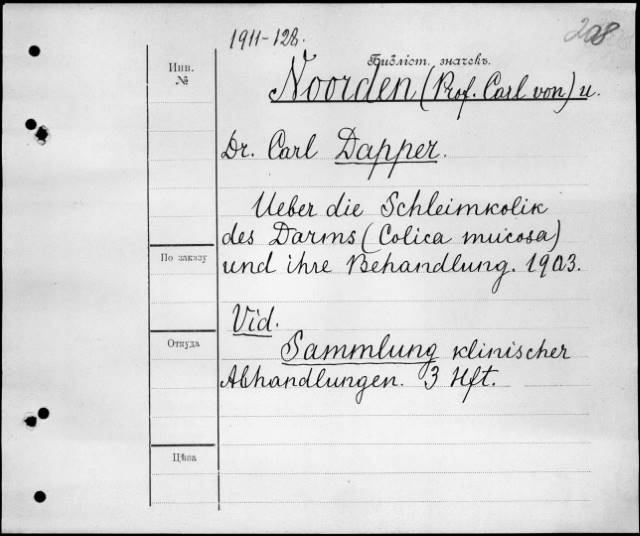 1911-128.
208
Инв.
№
Библіот. значекъ.
Noorden (Prof. Carl von) u.
Dr. Carl Dapper.
Ueber die Schleimkolik
des Darms (Colica mucosa)
По заказу
und ihre Behandlung. 1903.
Vid.
Откуда
Sammlung klinischer
Abhandlungen. 3 Hft.
Цѣна